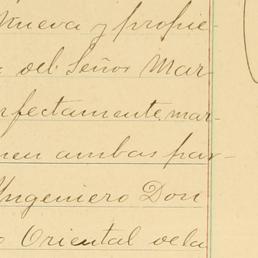 Nueva y propie-
del Señor Mar
fectamente mar-
en ambas par-
Ingeniero Don
Oriental de la